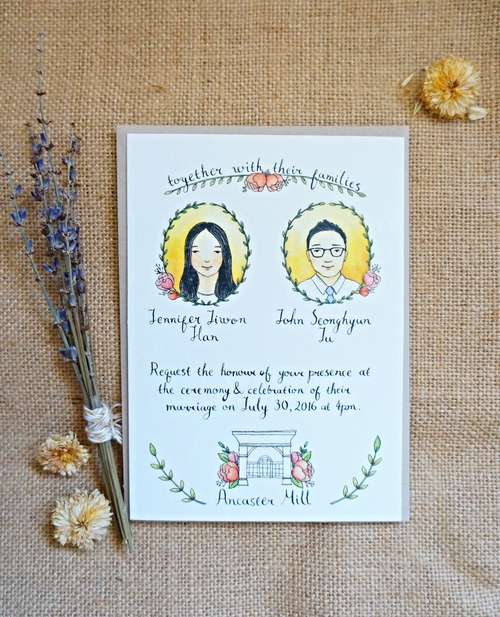 together with their families
Jennifer Jiwon
Han
John Seonghyun
Tu
Request the honour of your presence at
the ceremony & celebration of their
marriage on July 30, 2016 at 4pm.
Ancaster Mill